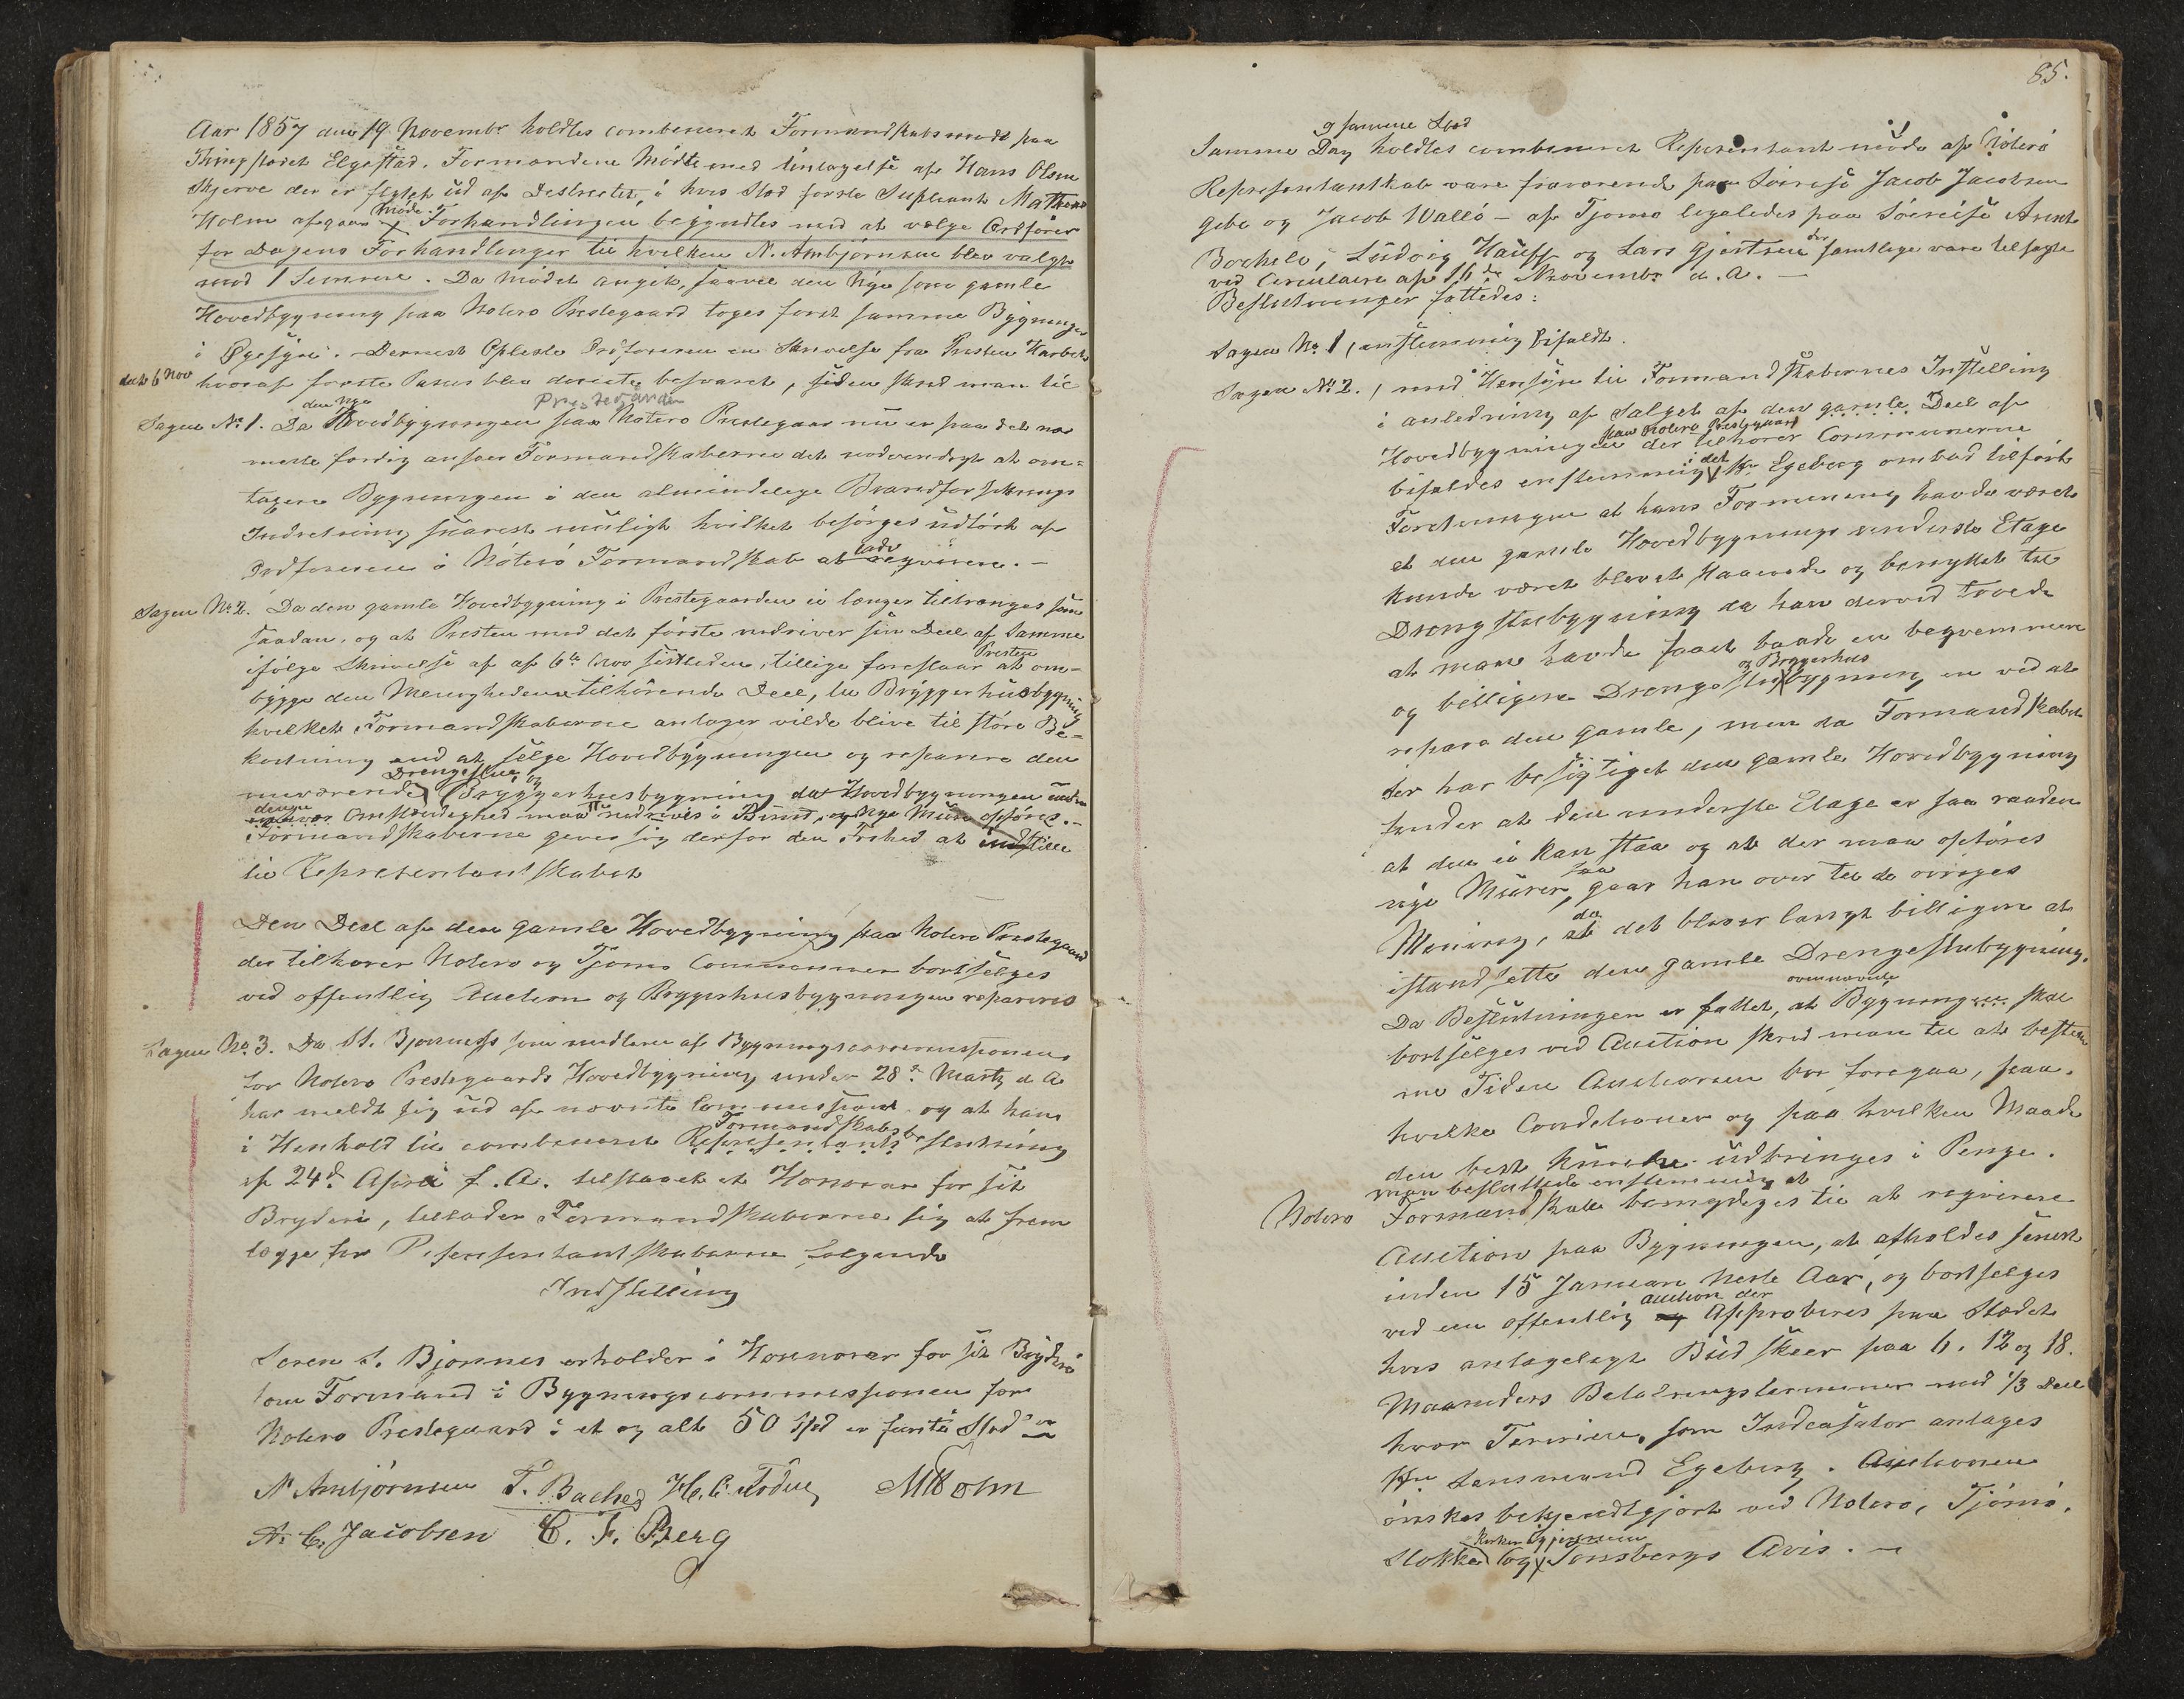 Aar 1857 den 19 Novembr holdtes combineret Formandskabsmøde paa
Thingstedet Elgestad. Formændene Mødte med Undtagelse af Hans Olsen
Skjerve der er flyttet ud af Destrectet, i hvis Sted første Supleant Mathias
Holm afgaar Møde. Forhandlingen begyndtes med at vælge Ordfører
for Dagens Forhandlinger til hvilken N. Ambjørnsen blev valgt
mod 1 Stemme. Da Mødet angik, saavel den Nye som gamle
Hovedbygning paa Nøterø Prestegaard toges først samme Bygninger
i Øyesyn. Dernest Oplæste Ordføreren en Skrivelse fra Presten
dat 6 Nov hvoraf første Passus blev besvaret, siden skred man til
Prestegaarden
Sagen No 1. Da den nye Hovedbygningen paa Nøterø Prestegaar nu er paa det nær
meste færdig ansaae Formandskaberne det nødvendigt at om=
taxere Bygningen i den almindelige Brandforsikrings
Indretning snarest muligt hvilket besørges udført af
Ordføreren i Nøterø Formandskab at lade reqvirere. –
Sagen No 2. Da den gamle Hovedbygning i Prestegaarden ei længer tiltrænges som
saadan, og at Presten med det første nedriver sin Deel af Samme
ifølge Skrivelse af af 6te Nov sistleden, tillige foreslaar Presten at om=
bygge den Menighederne tilhørende Deel, til Bryggerhusbygning
hvilket Formandskaberne antager vilde blive til større Be=
kostning end at sælge Hovedbygningen og reparere den
nuværende Drengestue og Bryggerhusbygning da Hovedbygningen under
denne Omstændighed maa nedrives i Bund, og Nye Mure opføres. –
Formandskaberne giver sig derfor den Frihed at indstille
til Representantskabet
Den Deel af den gamle Hovedbygning paa Nøterø Prestegaard
der tilhører Nøterø og Tjømø Communer bortsælges
ved offentlig Auction og Bryggerhusbygningen repareres
Sagen No 3. Da St. Bjønness som medlem af Bygningscommissionen
for Nøterø Prestegaards Hovedbygning under 28d Martz d A
har meldt sig ud af nævnte Commission og at ham
i Henhold til combineret Representants Formandskabs beslutning
af 24d April f. A. tilstaaet et Honorar for sit
Bryderi, tillader Formandskaberne sig at frem
lægge for Representantskaberne følgende
Indstilling
Søren S. Bjønnes erholder i Honnorar for sit Bryderi
som Formand i Bygningscommissionen for
Nøterø Prestegaard i et og alt 50 Spd er femti Spd
N Ambjørnsen F. Bache H. C. M Holm
A. C. Jacobsen C. F. Berg
85.
Samme Dag og samme Sted holdtes combineret Representantmøde af Nøterø
Representantskab vare fraværende paa Søreise Jacob Jacobsen
og Jacob Vallø – af Tjømø ligeledes paa Søreise Arent
Bochele, Ludvig Hauff og Lars Gjertsen der samtlige vare tilsagte
ved Circulaire af 16de Novembr d. A. –
Beslutninger fattedes:
Sagen No 1, enstemmig bifaldt.
Sagen No 2., med Hensyn til Formandskabernes Instelling
i anledning af Salget af den gamle Deel af
Hovedbygningen paa Nøterø Prestegaard der tilhører Communerne
bifaldes enstemmig, i det Hr Egeberg ombad tilført
Forretningen at hans Formening havde været
at den gamle Hovedbygnings underste Etage
kunde været blevet staaende og benyttet til
Drengstubygning da han derved troede
at man havde faaet baade en beqvemmere
og billigere Drengestu og Bryggerhus bygning en ved at
repare den gamle, men da Formandskabet
der har besigtiget den gamle Hovedbygning
finder at den underste Etage er saa raaden
at den ei kan staa og at der maa opføres
nye Murer, saa gaar han over til de øvriges
Mening, da det bliver langt billigere at
istandsette den gamle Drengestubygning.
Da Beslutningen er fattet, at ovennævnte Bygning skal
bortsælges ved Auction skred man til at bestem
me Tiden Auctionen bør foregaa, paa
hvilke Conditioner og paa hvilken Maade
den best kunde udbringes i Penge.
man besluttede enstemmig at
Nøterø Formandskab bemyndiges til at reqvirere
Auction paa Bygningen, at afholdes senest
inden 15 Januari neste Aar, og bortsælges
ved en offentlig auction der Approberes paa Stedet
hvis antageligt Bud skeer paa 6. 12 og 18.
Maaneders Betalingsterminer med 1/3 Deel
hver Termin, som Indcasator antages
Hr Lensmand Egeberg. Auctionen
ønskes bekjendtgjort ved Nøterø, Tjømø,
Stokke Kirker og gjennem Tønsbergs Avis. –